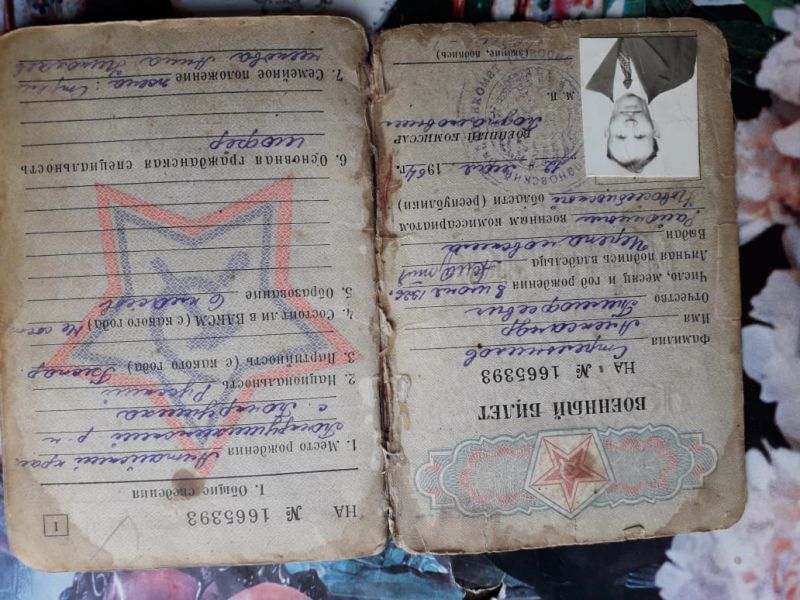 ВОЕННЫЙ БИЛЕТ
НА № 1665393
Фамилия
Имя Александр
Отчество Тимофеевич
Число, месяц и год рождения 8 июня 1926г.
Личная подпись владельца
Выдан Черепановским
районным военным комиссариатом
Новосибирской области (республики)
1964г.
ВОЕННЫЙ КОМИССАР
М. П.
(звание, подпись)
НА № 1665393
1
I. Общие сведения
1. Место рождения Алтайский край
р-н
с.
2. Национальность Русский
3. Партийность (с какого года)
4. Состоит ли в ВЛКСМ (с какого года) Не сост.
5. Образование 6 классов
6. Основная гражданская специальность
шофер
7. Семейное положение
жена:
Анна